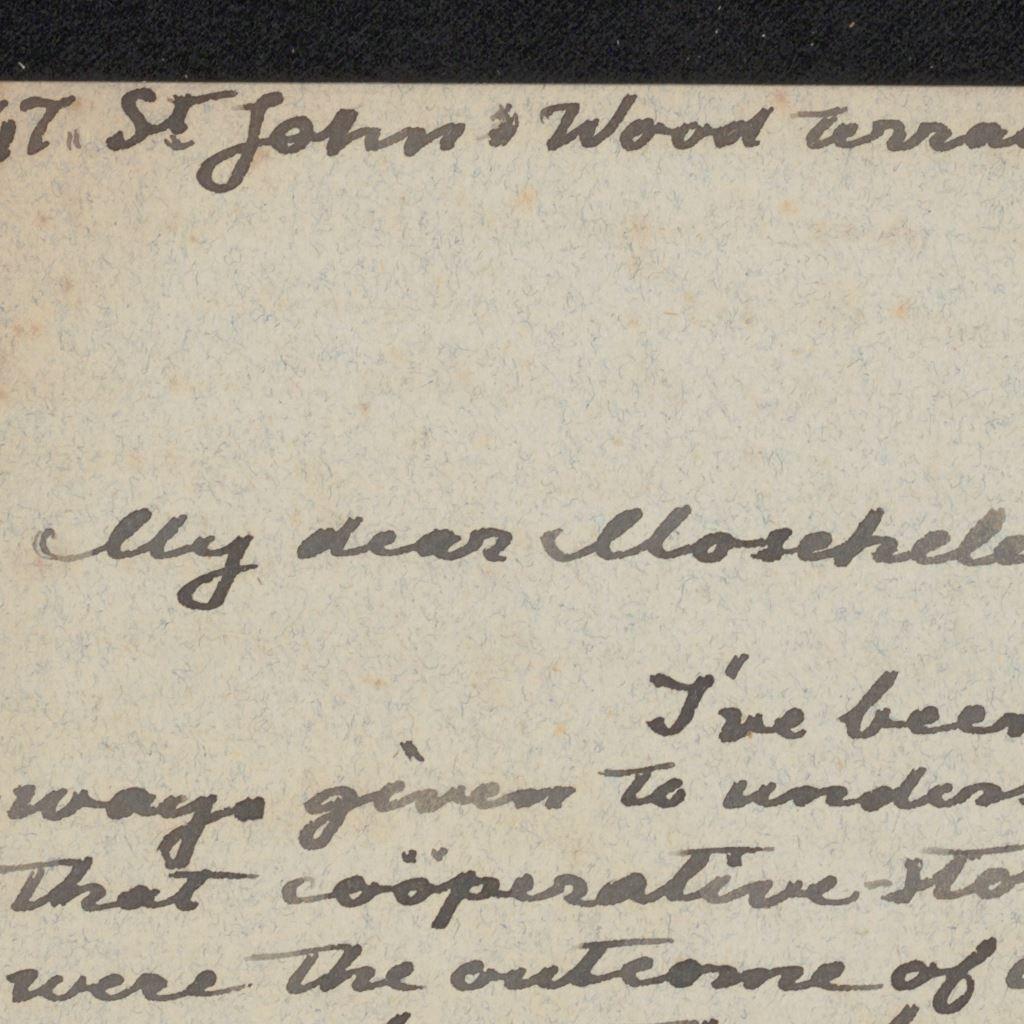 St John's Wood Terra
My dear Moschele
I've been
ways given to unders
that coöperative-sto
were the outcome of